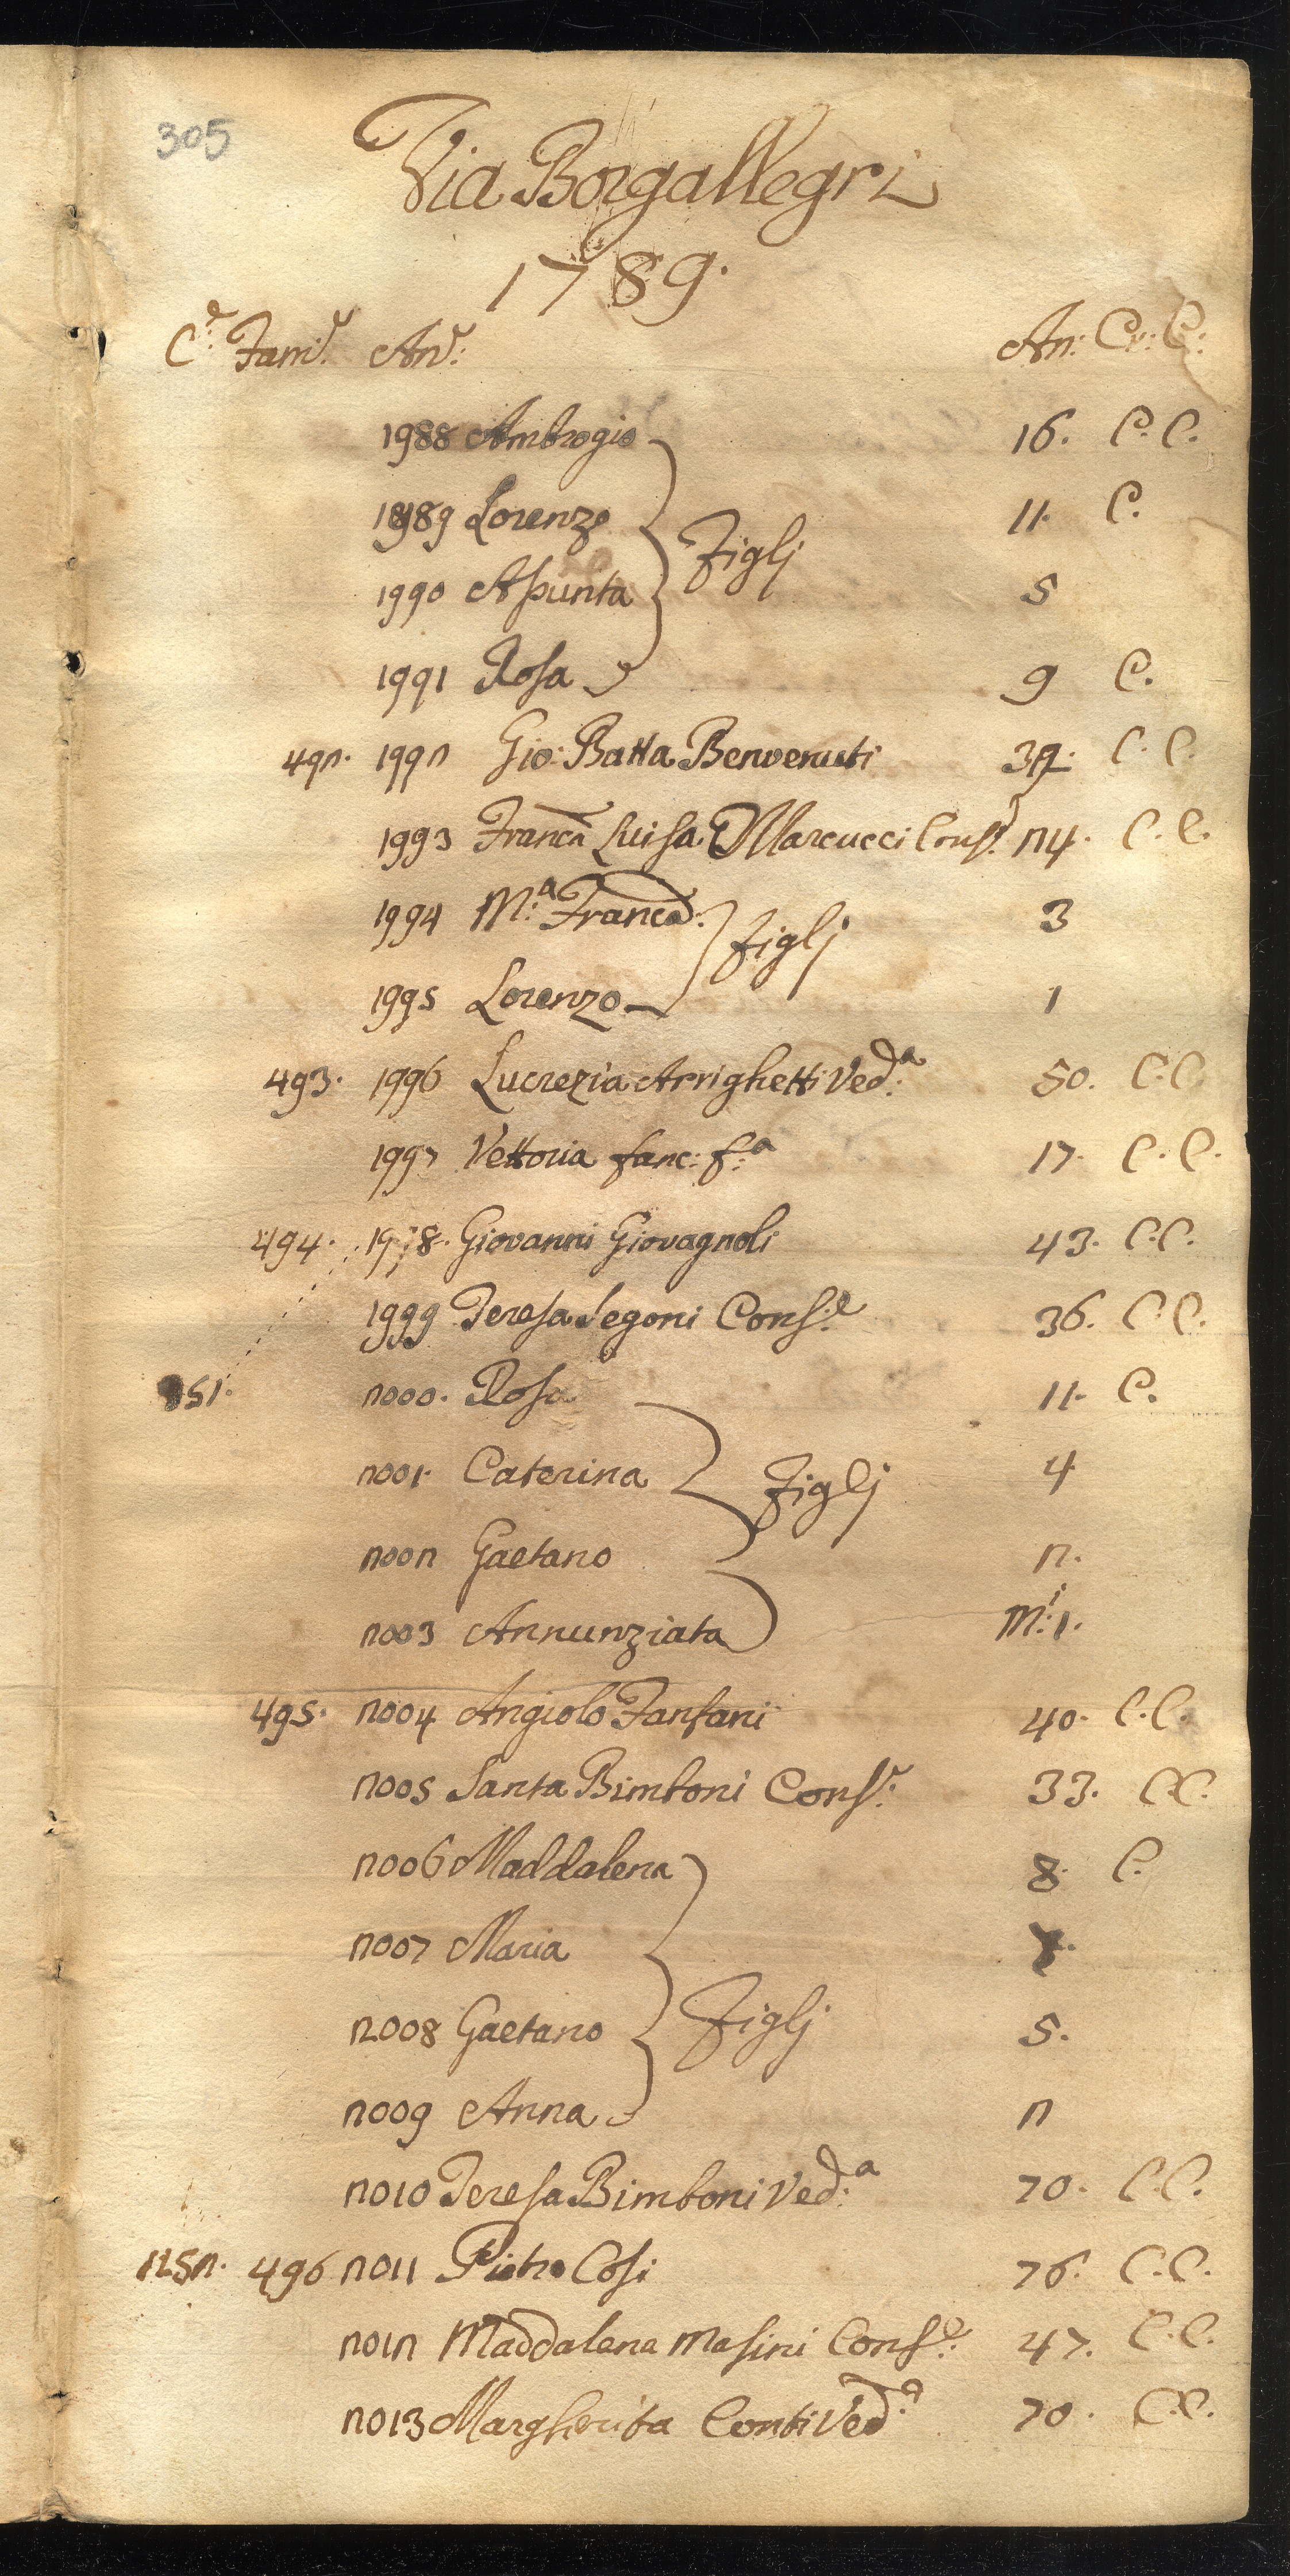 305
Via Borgallegri
1789.
C.e Fam.e An.e An: Cr: C:
1988 Ambrogio 16. C. C.
1989 Lorenzo 11. C.
Figlj
1990 Assunta 5
1991 Rosa 9 C.
492. 1992 Gio: Batta Benvenuti C. C.
1993 Franca Luisa Marcucci Cons.e 24. C. C.
1994 M.a Franca. 3
Figlj
1995 Lorenzo 1
493. 1996 Lucrezia Arrighetti Ved.a 50. C. C.
1997 Vettoria fanc: f.a 17. C. C.
494. 1998. Giovanni Giovagnoli 43. C. C.
1999 Teresa Segoni Cons.e 36. C. C.
251. 2000. Rosa 11. C.
2001. Caterina 4
Figlj
2002 Gaetano 2.
2003 Annunziata M.i 1.
495. 2004 Angiolo Fanfani 40. C. C.
2005 Santa Bimboni Cons.e 33. C. C.
2006 Maddalena 8. C.
2007 Maria
2008 Gaetano Figlj 5.
2009 Anna 2
2010 Teresa Bimboni Ved.a 70. C. C.
252. 496 2011 Pietro Cosi 76. C. C.
2012 Maddalena Masini Cons.e 47. C. C.
2013 Margherita Conti Ved.a 70. C. C.